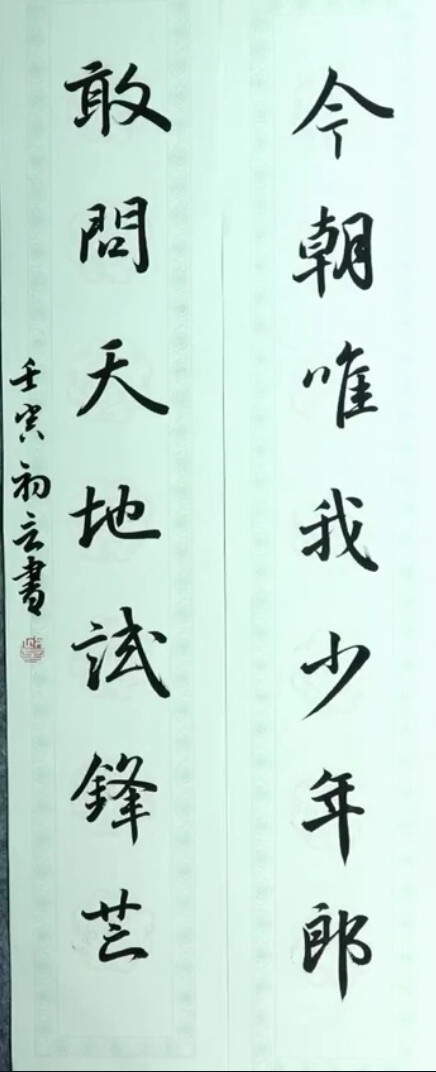 今朝唯我少年郎
敢問天地試鋒芒
壬寅初云書